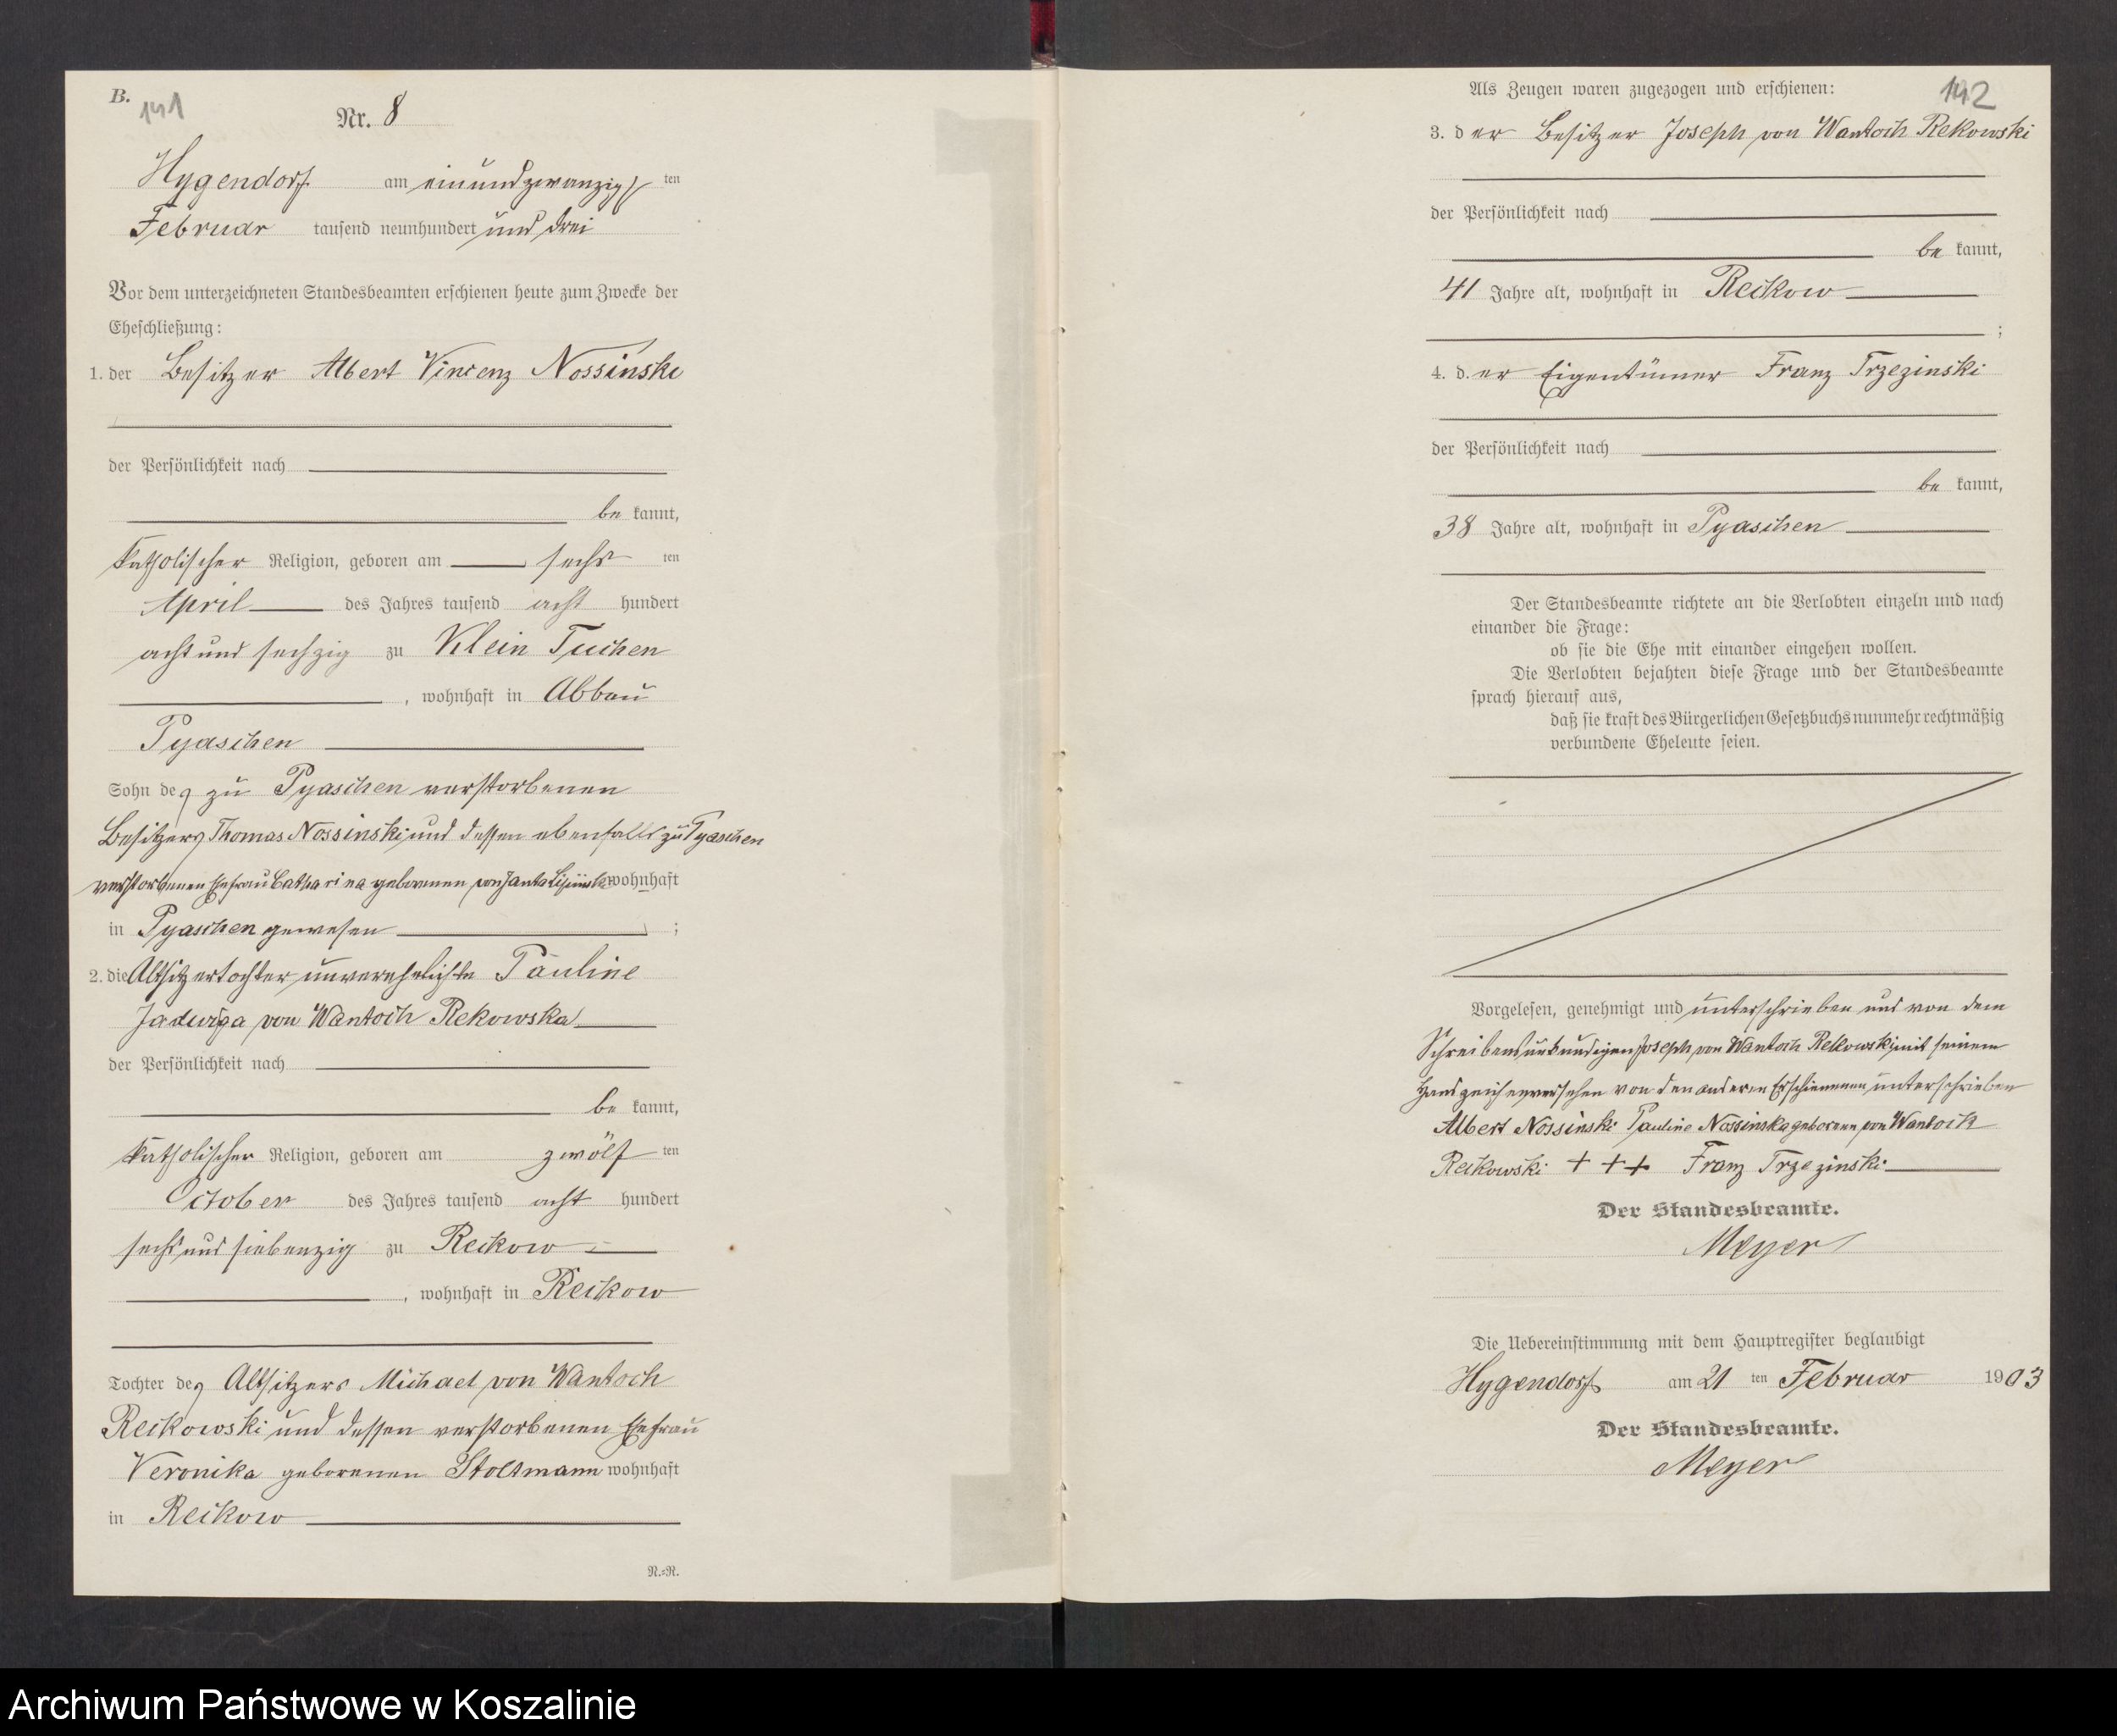 B.
141
Nr. 8
Hygendorf am einundzwanzigsten
Februar tausend neunhundert und drei
Vor dem unterzeichneten Standesbeamten erschienen heute zum Zwecke der
Eheschließung:
1. der Besitzer Albert Vincenz Nossinski
der Persönlichkeit nach
be kannt,
katholischer Religion, geboren am sechs ten
April des Jahres tausend acht hundert
acht und sechzig zu Klein Tuchen
, wohnhaft in Abbau
Pyaschen
Sohn des zu Pyaschen verstorbenen
Besitzers Thomas Nossinski und dessen ebenfalls zu Pyaschen
verstorbenen Ehefrau Catharina geborenen von Janta Lipinski wohnhaft
in Pyaschen gewesen ;
2. die Altsitzertochter unverehelichte Pauline
Jadwiga von Wantoch Rekowska
der Persönlichkeit nach
be kannt,
katholischer Religion, geboren am zwölf ten
October des Jahres tausend acht hundert
sechs und siebenzig zu Reckow
, wohnhaft in Reckow
Tochter des Altsitzers Michael von Wantoch
Reckowski und dessen verstorbenen Ehefrau
Veronika geborenen Stoltmann wohnhaft
in Reckow
N.=R.
142
Als Zeugen waren zugezogen und erschienen:
3. d er Besitzer Joseph von Wantoch Rekowski
der Persönlichkeit nach
be kannt,
41 Jahre alt, wohnhaft in Reckow
;
4. d. er Eigentümer Franz Trzezinski
der Persönlichkeit nach
be kannt,
38 Jahre alt, wohnhaft in Pyaschen
Der Standesbeamte richtete an die Verlobten einzeln und nach
einander die Frage:
ob sie die Ehe mit einander eingehen wollen.
Die Verlobten bejahten diese Frage und der Standesbeamte
sprach hierauf aus,
daß sie kraft des Bürgerlichen Gesetzbuchs nunmehr rechtmäßig
verbundene Eheleute seien.
Vorgelesen, genehmigt und unterschrieben und von dem
Schreibensunkundigen Joseph von Wantoch Rekowski mit seinem
Handzeichen versehen von den anderen Erschienenen unterschrieben
Albert Nossinski Pauline Nossinska geborene von Wantoch
Reckowski + + + Franz Trzezinski
Der Standesbeamte.
Meyer
Die Uebereinstimmung mit dem Hauptregister beglaubigt
Hygendorf am 21 ten Februar 1903
Der Standesbeamte.
Meyer
Archiwum Państwowe w Koszalinie